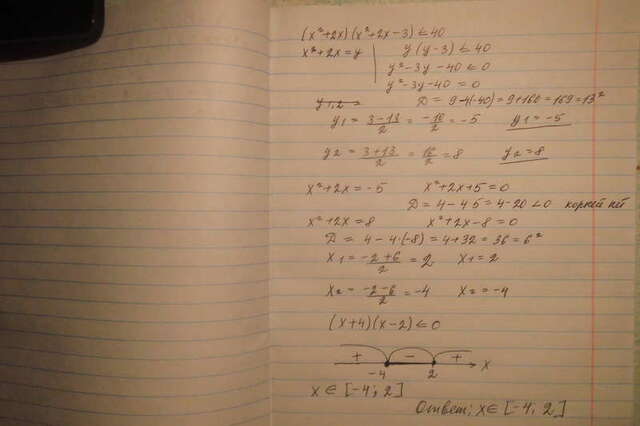 (x²+2x)(x²+2x-3) ≤ 40
x²+2x=y | y(y-3) ≤ 40
y²-3y-40 ≤ 0
y²-3y-40 = 0
y1,2 = D = 9-4(-40) = 9+160 = 169 = 13²
y1 = (3-13)/2 = -10/2 = -5 y1 = -5
y2 = (3+13)/2 = 16/2 = 8 y2 = 8
x²+2x = -5 x²+2x+5 = 0
D = 4-4·5 = 4-20 < 0 корней нет
x²+2x = 8 x²+2x-8 = 0
D = 4-4·(-8) = 4+32 = 36 = 6²
x1 = (-2+6)/2 = 2 x1 = 2
x2 = (-2-6)/2 = -4 x2 = -4
(x+4)(x-2) ≤ 0
+ - +
-4 2 x
x ∈ [-4; 2]
Ответ: x ∈ [-4; 2]